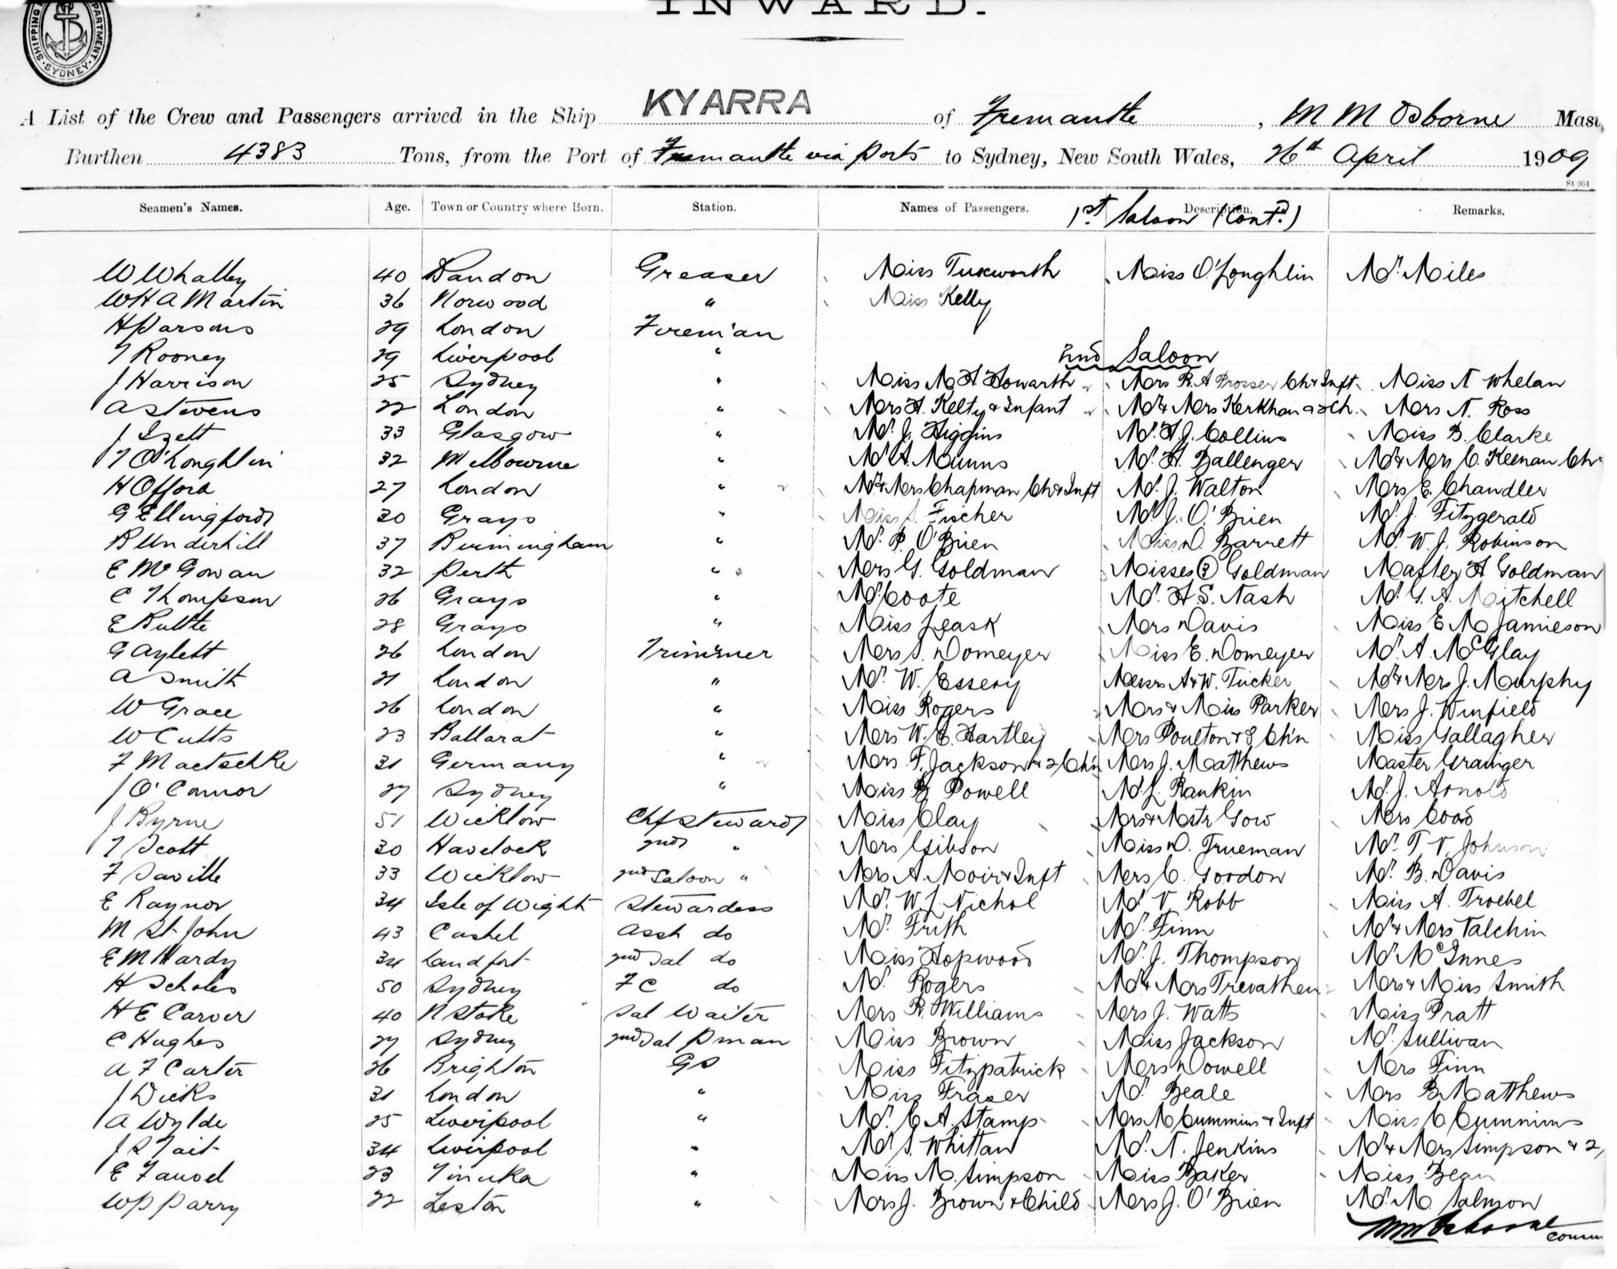 INWARD.
SHIPPING DEPARTMENT SYDNEY
A List of the Crew and Passengers arrived in the Ship KYARRA of Fremantle, M M Osborne Mas
Burthen 4383 Tons, from the Port of Fremantle via ports to Sydney, New South Wales, 26th April 1909
Seamen's Names. Age. Town or Country where Born. Station. Names of Passengers. Description. Remarks.
1st Saloon (Contd.)
W Whalley 40 Bandon Greaser Miss Tuxworth Miss O'Loughlin Mr. Miles
W H A Martin 36 Norwood " Miss Kelly
H Parsons 29 London Fireman
T Rooney 29 Liverpool " 2nd Saloon
J Harrison 25 Sydney " Miss M H Howarth Mrs R. A Prosser Ch & Inft Miss N Whelan
A Stevens 22 London " Mrs H. Kelty & Infant Mr & Mrs Kerkhan & 2 ch. Mrs N. Ross
J Izett 33 Glasgow " Mr. J. Higgins Mr. H. J. Collins Miss B. Clarke
T O'Loughlin 32 Melbourne " Mr A. Munns Mr. H. Ballenger Mr & Mrs C. Keenan Ch
H Offord 27 London " Mr & Mrs Chapman Ch & Inft Mr. J. Walton Mrs E. Chandler
G Ellingford 30 Grays " Miss Fischer Mr J. O'Brien Mr. J. Fitzgerald
B Underhill 37 Birmingham " Mr. P. O'Brien Miss D. Barnett Mr. W. J. Robinson
E McGowan 32 Perth " Mrs G. Goldman Misses (3) Goldman Master H Goldman
C Thompson 26 Grays " Mr Coote Mr. H S. Nash Mr. G. A. Mitchell
E Rultte 28 Grays " Miss Leask Mrs Davis Miss E M Jamieson
G Aylett 26 London Trimmer Mrs S. Domeyer Miss E. Domeyer Mr. A McGlay
A Smith 21 London " Mr. W. Essery Messrs A & W. Tucker Mr & Mrs J. Murphy
W Grace 26 London " Miss Rogers Mrs & Miss Parker Mrs J. Winfield
W Cutts 23 Ballarat " Mrs W. E. Hartley Mrs Poulton & 8 Ch'n Miss Gallagher
F Maetschke 31 Germany " Mrs F. Jackson & 2 Chn Mrs J. Matthews Master Grainger
J O'Connor 27 Sydney " Miss B Powell Mr L. Rankin Mr. J. Arnold
J Byrne 51 Wicklow Chf Steward Miss Clay Mrs & Mstr Gow Mrs Coad
T Scott 30 Havelock 2nd " Mrs Gibson Miss D. Trueman Mr. T. V. Johnson
F Saville 33 Wicklow 2nd Saloon " Mrs A. Moir & Inft Mrs C. Gordon Mr. B. Davis
E Raynor 34 Isle of Wight Stewardess Mr. W. J. Nichol Mr V Robb Miss A. Troebel
M St John 43 Cashel Asst do Mr. Frith Mr. Finn Mr & Mrs Talchin
E M Hardy 34 Landport 2nd Sal do Miss Hopwood Mr. J. Thompson Mr McInnes
H Scholes 50 Sydney F C do Mr. Rogers Mr & Mrs Trevathen Mrs & Miss Smith
H E Carver 40 N Stoke Sal Waiter Mrs R. Williams Mrs J. Watts Miss Pratt
C Hughes 27 Sydney 2nd Sal Pman Miss Brown Miss Jackson Mr. Sullivan
A F Carter 26 Brighton GS Miss Fitzpatrick Mrs Dowell Mrs Finn
J Dicks 31 London " Miss Fraser Mr. Beale Mrs B. Matthews
A Wylde 25 Liverpool " Mr. C. A. Stamp Mrs M Cummins & Inft Miss C Cummins
J S Tait 34 Liverpool " Mr. S. Whittan Mr. N. Jenkins Mr & Mrs Simpson & 2
E Fauvel 23 Timuka " Miss M. Simpson Miss Baker Miss Bean
W P Parry 22 Leston " Mrs J. Brown & Child Mrs J. O'Brien Mr. M Salmon
MM Osborne